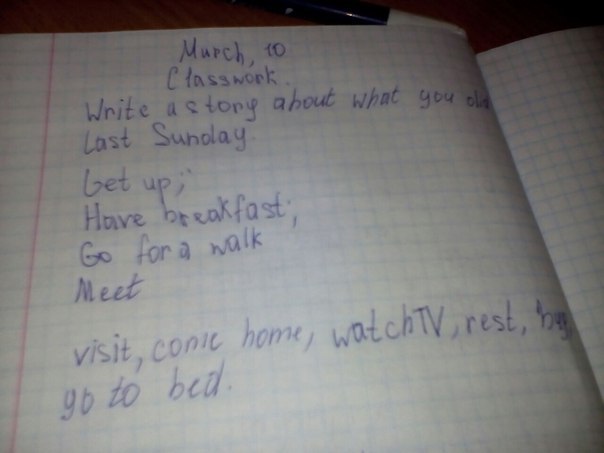 March, 10
Classwork.
Write a story about what you did
Last Sunday.
Get up;
Have breakfast;
Go for a walk
Meet
visit, come home, watch TV, rest,
go to bed.